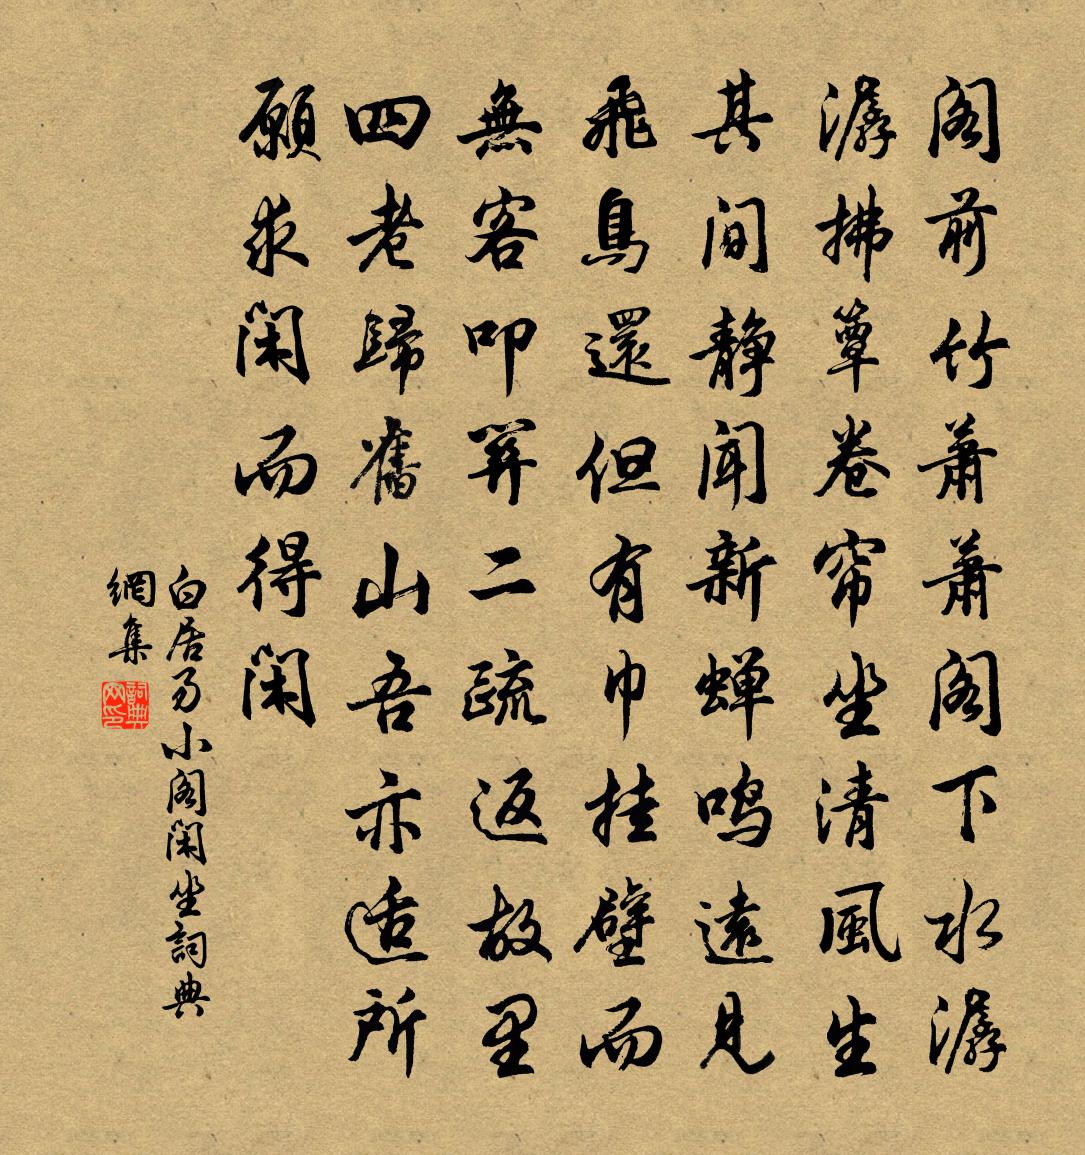 閣前竹蕭蕭閣下水潺
潺拂簟卷帘坐清風生
其間静聞新蝉鳴遠見
飛鳥還但有巾挂壁而
無客叩關二疏返故里
四老歸舊山吾亦适所
願求閑而得閑
白居易小閣閑坐詞典
網集
詞典网印